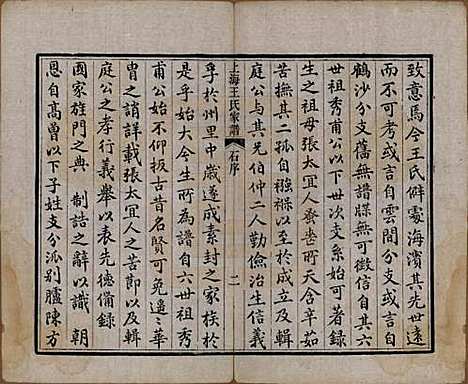 致意焉今王氏僻處海濱其先世遠
而不可考或言自雲間分支或言自
鶴沙分支舊無譜牒無可徵信自其六
世祖秀甫公以下世次支系始可著錄
生之祖母張太宜人耆耋所天含辛茹
苦撫其二孤自襁褓以至於成立及輯
庭公與其兄伯仲二人勤儉治生信義
孚於州里中歲遂成素封之家族於
上海王氏家譜
右序
二
是乎始大今生所為譜自六世祖秀
甫公始不仰扳古昔名賢可免遙遙華
胄之誚詳載張太宜人之苦節以及輯
庭公之孝行義舉以表先德備錄
國家雄門之典制誥之辭以識朝
恩自高曾以下子姓支分派別臚陳方